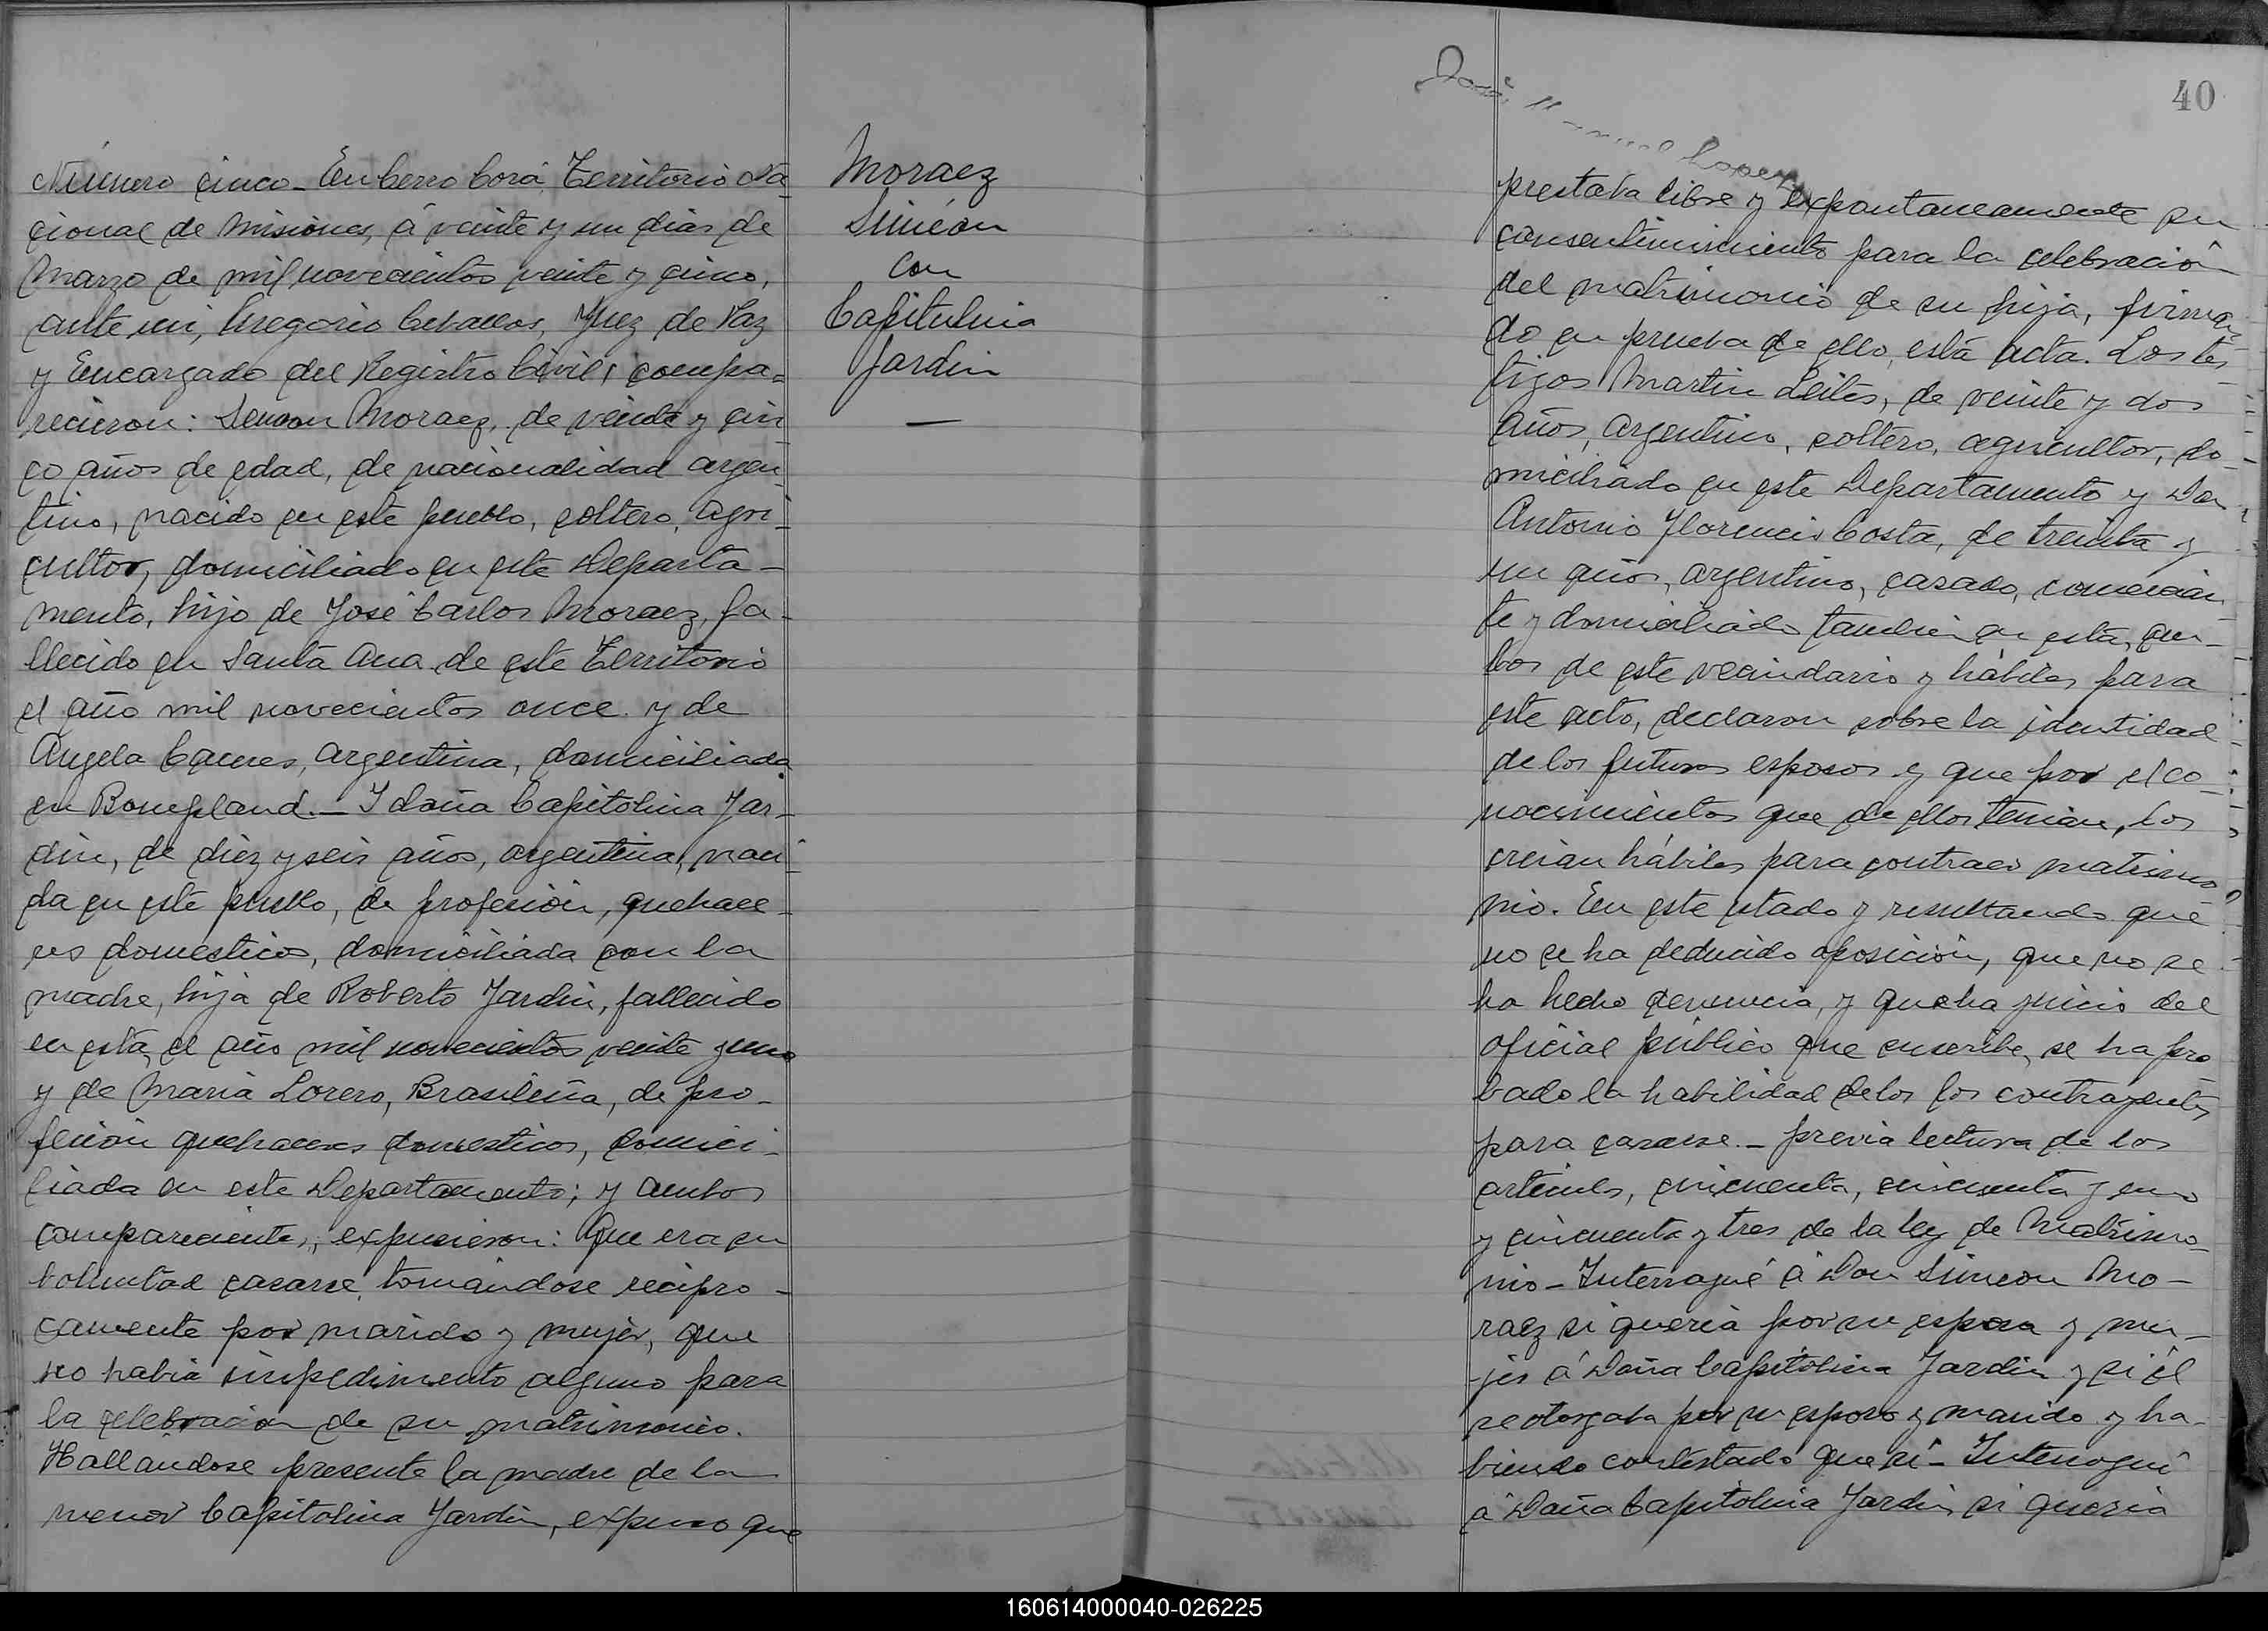 Número cinco - En Cerro Corá, Territorio Na-
cional de Misiones, á veinte y un dias de
Marzo de mil novecientos veinte y cinco,
ante mi, Gregorio Ceballos, Juez de Paz
y Encargado del Registro Civil; compa=
recieron: Simeon Moraez, de veinte y cin-
co años de edad, de nacionalidad argen-
tino, nacido en este pueblo, soltero, agri-
cultor, domiciliado en este Departa-
mento, hijo de José Carlos Moraez, fa-
llecido en Santa Ana de este Territorio
el año mil novecientos once y de
Angela Caceres, argentina, domiciliada
en Bonpland. - I doña Capitolina Jar-
din, de diez y seis años, argentina, naci-
da en este pueblo, de profesión, quehace-
res domesticos, domiciliada con la
madre, hija de Roberto Jardin, fallecido
en esta, el año mil novecientos veinte y uno
y de Maria Lorero, Brasileña, de pro-
fesion quehaceres domesticos, domici-
liada en este Departamento; y ambos
comparecientes, expusieron: Que era su
boluntad casarse, tomándose recipro-
camente por marido y mujer, que
no habia impedimento alguno para
la celebracion de su matrimonio.
Hallandose presente la madre de la
menor Capitolina Jardin, expuso que
Moraez
Simeón
con
Capitulina
Jardin
40
José Manuel Lopez
prestaba libre y expontaneamente su
consentimimiento para la celebración
del matrimonio de su hija, firman-
do en prueba de ello, está acta. Los tes-
tigos Martin Leites, de veinte y dos
años, argentino, soltero, agricultor, do-
miciliado en este Departamento y Don
Antonio Florencio Costa, de treinta y
un años, argentino, casado, comercian-
te y domiciliado tambien en esta, am-
bos de este vecindario y hábiles para
este acto, declaron sobre la identidad
de los futuros esposos y que por el co-
nocimientos que de ellos tenian, los
creian hábiles para contraer matrimo-
nio. En este estado y resultando que
no se ha deducido oposición, que no se
ha hecho denuncia, y que ha juicio del
oficial público que suscribe, se ha pro
bado la habilidad de los los contrayentes
para casarse. - previa lectura de los
articulos, cincuenta, cincuenta y uno
y cincuenta y tres de la ley de Matrimo-
nio - Interrogué á Don Simeon Mo-
raez si queria por su esposa y mu-
jer á Doña Capitolina Jardin y si él
se otorgaba por su esposo y marido y ha-
biendo contestado que sí - Interrogué
á Doña Capitolina Jardin si queria
160614000040-026225